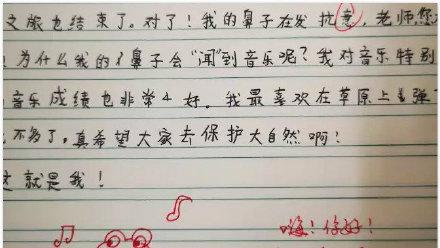 文版也结束了。对了！我的鼻子在发抗意，老师您
为什么我的鼻子会“闻”到音乐呢？我对音乐特别
音乐成绩也非常好。我最喜欢在草原上弹
不多了。真希望大家去保护大自然啊！
这就是我！
嗨！你好！